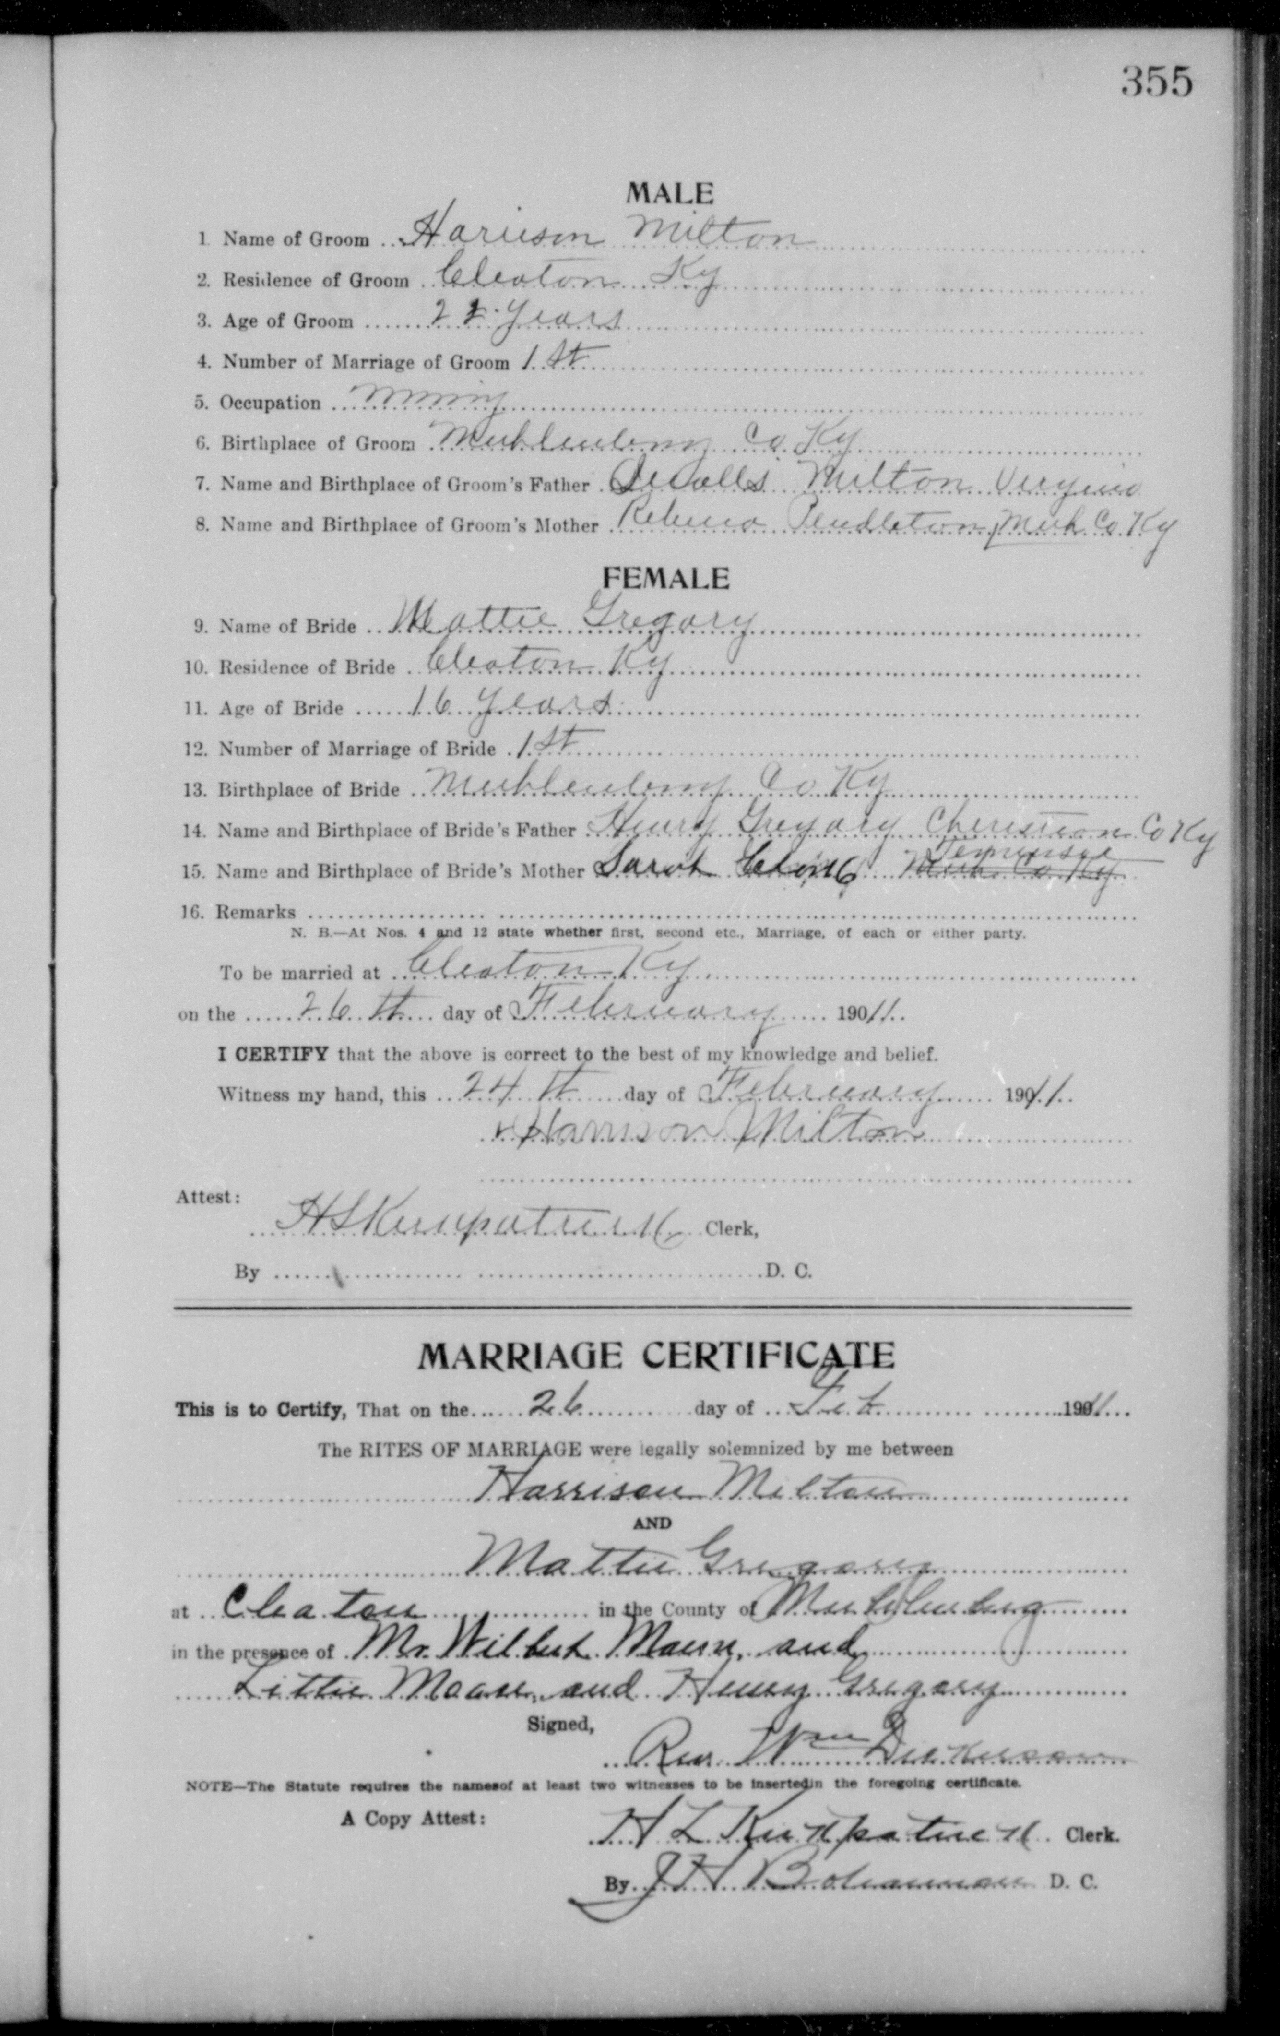 355
MALE
1 Name of Groom Harrison Milton
2. Residence of Groom Cleaton Ky
3. Age of Groom 22 years
4. Number of Marriage of Groom 1st
5. Occupation Mining
6. Birthplace of Groom Muhlenberg Co Ky
7. Name and Birthplace of Groom's Father Milton Virginia
8. Name and Birthplace of Groom's Mother Rebecca Pendleton, Muh Co. Ky
FEMALE
9. Name of Bride Mattie Gregory
10. Residence of Bride Cleaton Ky
11. Age of Bride 16 years
12. Number of Marriage of Bride 1st
13. Birthplace of Bride Muhlenberg Co Ky
14. Name and Birthplace of Bride's Father Henry Gregory Christian Co Ky
Tennessee
15. Name and Birthplace of Bride's Mother Sarah Muh Co Ky
16. Remarks
N. B.—At Nos. 4 and 12 state whether first, second etc., Marriage, of each or either party.
To be married at Cleaton Ky
on the 26th day of February 190 11
I CERTIFY that the above is correct to the best of my knowledge and belief.
Witness my hand, this 24th day of February 1911
Harrison Milton
Attest:
H L Kirkpatrick Clerk,
By D. C.
MARRIAGE CERTIFICATE
This is to Certify, That on the 26 day of Feb 1911
The RITES OF MARRIAGE were legally solemnized by me between
Harrison Milton
AND
Mattie Gregory
at Cleaton in the County of Muhlenberg
in the presence of Mr. Wilbert Moore, and
Littie Moore, and Henry Gregory
Signed,
Rev Wm Dickerson
NOTE—The Statute requires the namesof at least two witnesses to be insertedin the foregoing certificate.
A Copy Attest:
H L Kirkpatrick Clerk.
By J H Bohannon D. C.